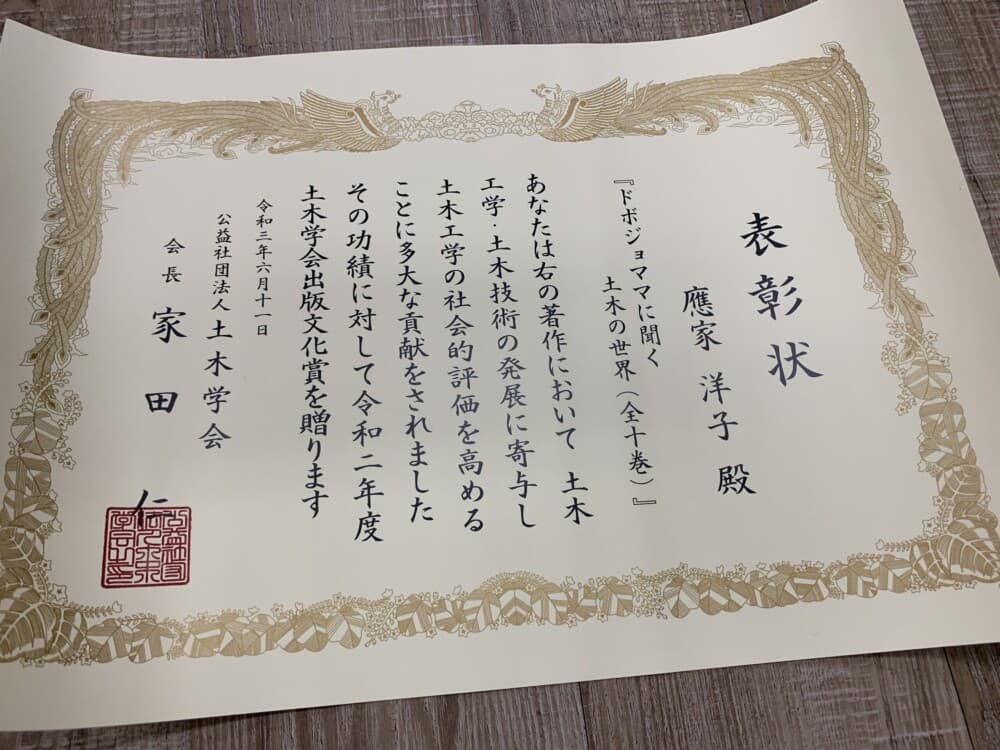 表彰状
應家 洋子 殿
『ドボジョママに聞く
土木の世界(全十巻)』
あなたは右の著作において 土木
工学・土木技術の発展に寄与し
土木工学の社会的評価を高める
ことに多大な貢献をされました
その功績に対して令和二年度
土木学会出版文化賞を贈ります
令和三年六月十一日
公益社団法人 土木学会
会長 家田 仁